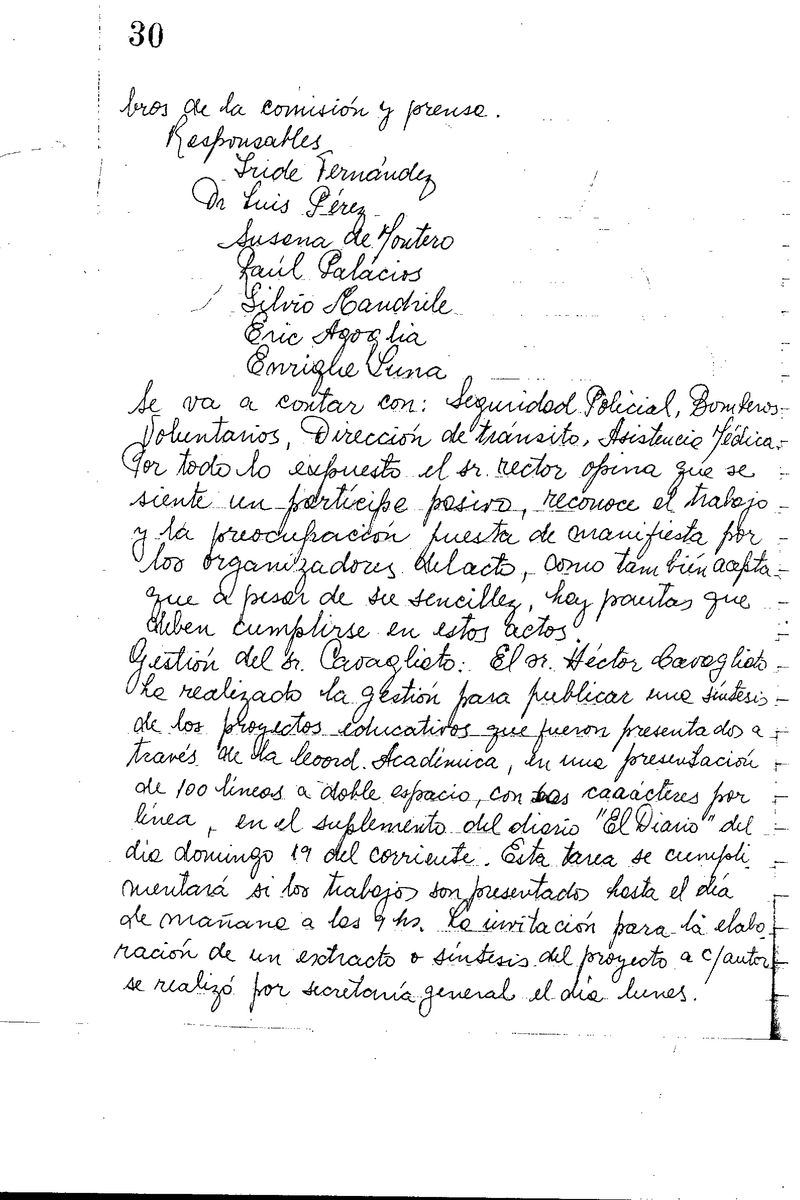 30
bros de la comisión y prensa.
Responsables
Iride Fernández
Dr Luis Pérez
Susana de Montero
Raúl Palacios
Silvio Mandrile
Eric Agoglia
Enrique Luna
Se va a contar con: Seguridad Policial, Bomteros
Voluntarios, Dirección de tránsito, Asistencia Médica.
Por todo lo expuesto el sr. rector opina que se
siente un partícipe pasivo, reconoce el trabajo
y la preocupación puesta de manifiesta por
los organizadores del acto, como también acepta
que a pesar de su sencillez, hay pautas que
deben cumplirse en estos actos.
Gestión del sr. Cavagliato: El sr. Héctor Cavagliato
ha realizado la gestión para publicar una síntesis
de los proyectos educativos que fueron presentados a
través de la Coord. Académica, en una presentación
de 100 líneas a doble espacio, con caaácteres por
línea, en el suplemento del diario "El Diario" del
día domingo 19 del corriente. Esta tarea se cumpli-
mentará si los trabajos son presentados hasta el día
de mañana a las 9 hs. La invitación para la elabo-
ración de un extracto o síntesis del proyecto a c/autor
se realizó por secretaría general el día lunes.